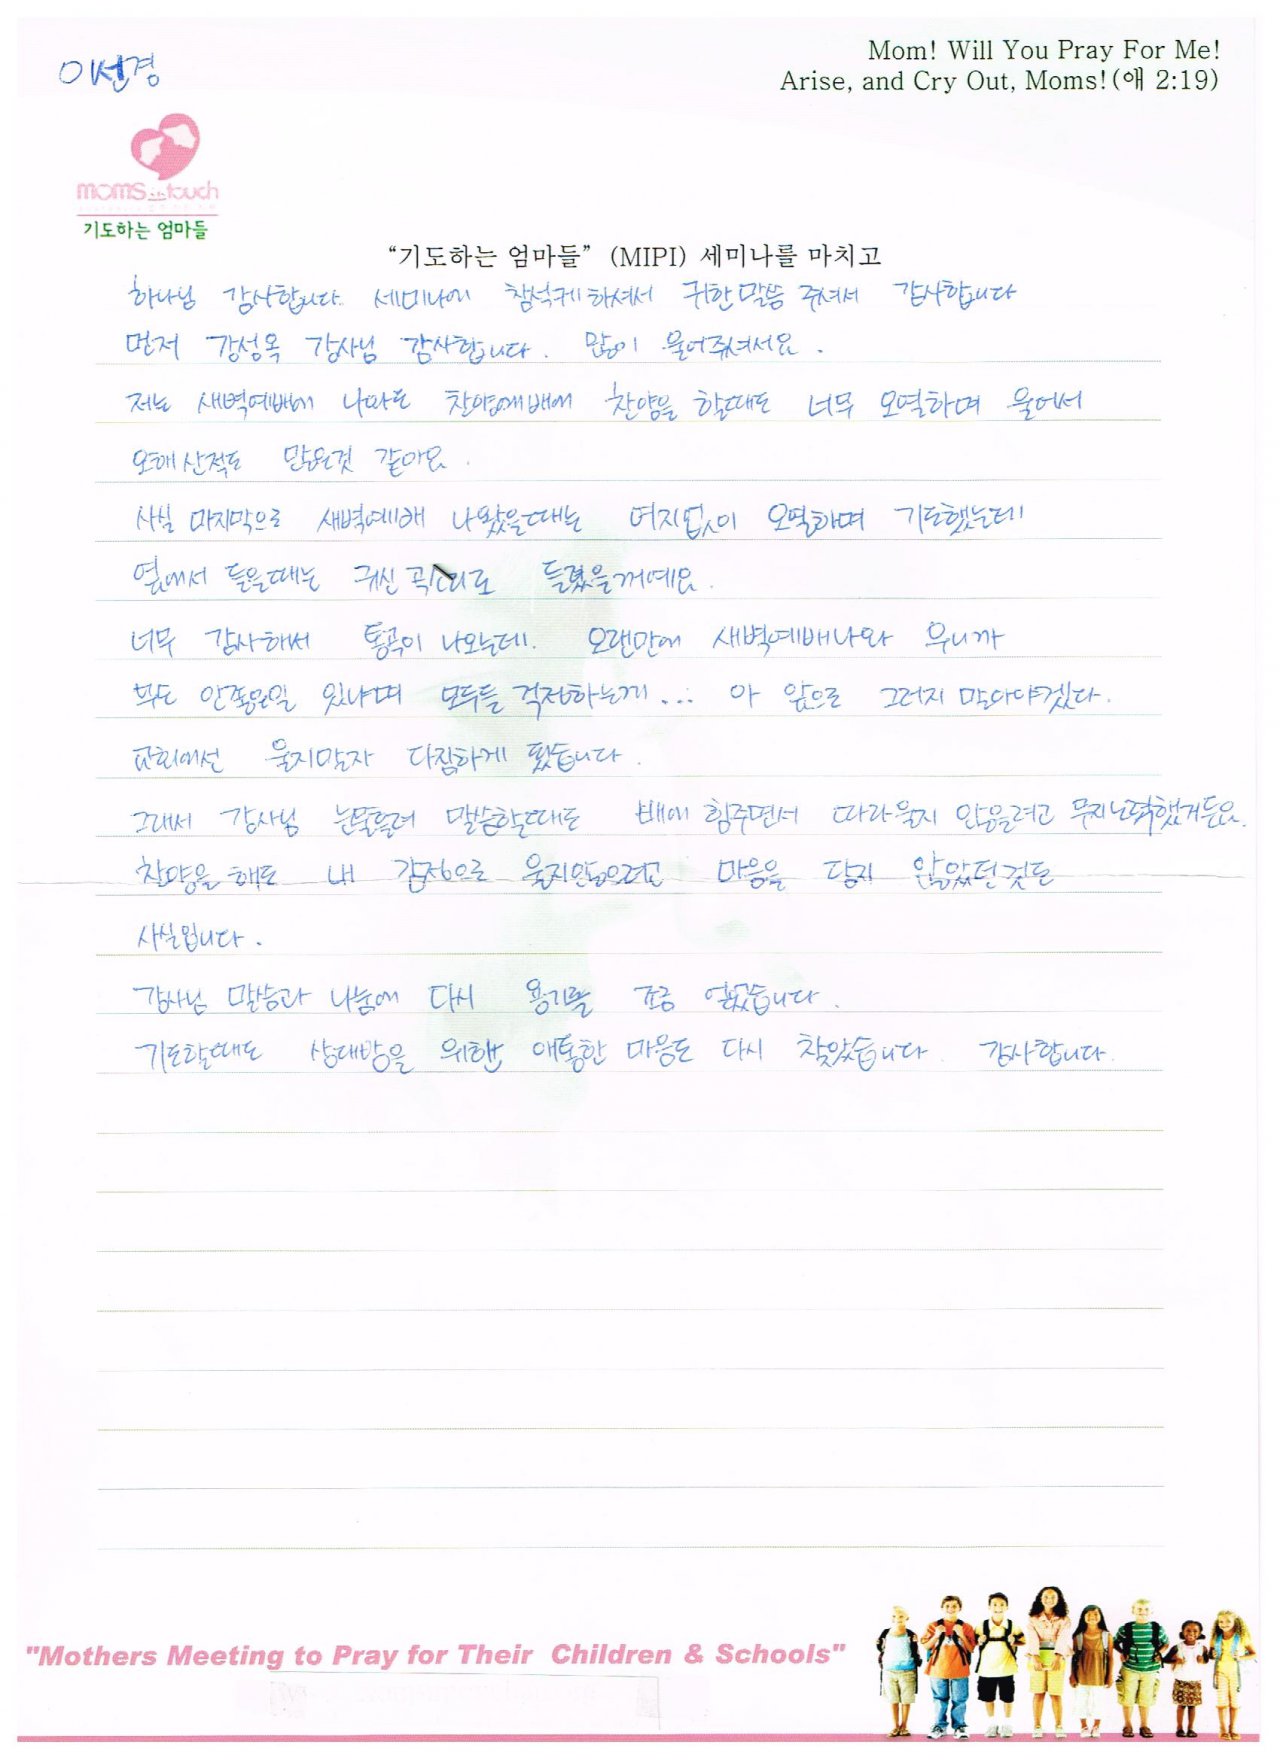 이선경
Mom! Will You Pray For Me!
Arise, and Cry Out, Moms!(애 2:19)
moms in touch
기도하는 엄마들
“기도하는 엄마들” (MIPI) 세미나를 마치고
하나님 감사합니다. 세미나에 참석케하셔서 귀한말씀 주셔서 감사합니다
먼저 강성옥 강사님 감사합니다. 많이 울어주셔서요.
저는 새벽예배에 나와도 찬양예배에 찬양을 할때도 너무 오열하며 울어서
오해산적도 많은것 같아요.
사실 마지막으로 새벽예배 나왔을때는 여지없이 오열하며 기도했는데
옆에서 들을때는 귀신 곡소리로 들렸을꺼예요.
너무 감사해서 통곡이 나오는데. 오랜만에 새벽예배나와 우니까
안좋은일 있냐며 모두들 걱정하는게... 아 앞으로 그러지 말아야겠다.
교회에선 울지말자 다짐하게 됐습니다.
그래서 강사님 눈물흘려 말씀할때도 배에 힘주면서 따라울지 않을려고 무지노력했거든요.
찬양을 해도 내 감정으로 울지않으려고 마음을 닫지 않았던것도
사실입니다.
강사님 말씀과 나눔에 다시 용기를 조금 얻었습니다.
기도할때도 상대방을 위한 애통한 마음도 다시 찾았습니다. 감사합니다.
"Mothers Meeting to Pray for Their Children & Schools"